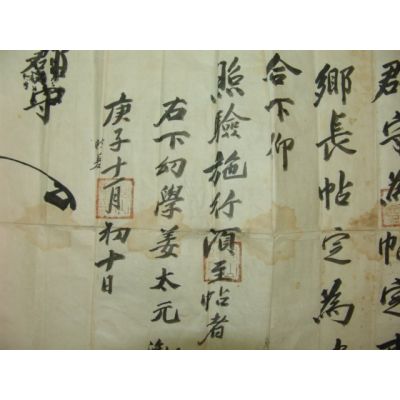 守為帖定
鄉長帖定為
合下仰
照驗施行須至帖者
右下幼學姜太元
庚子十一月初十日
郡守